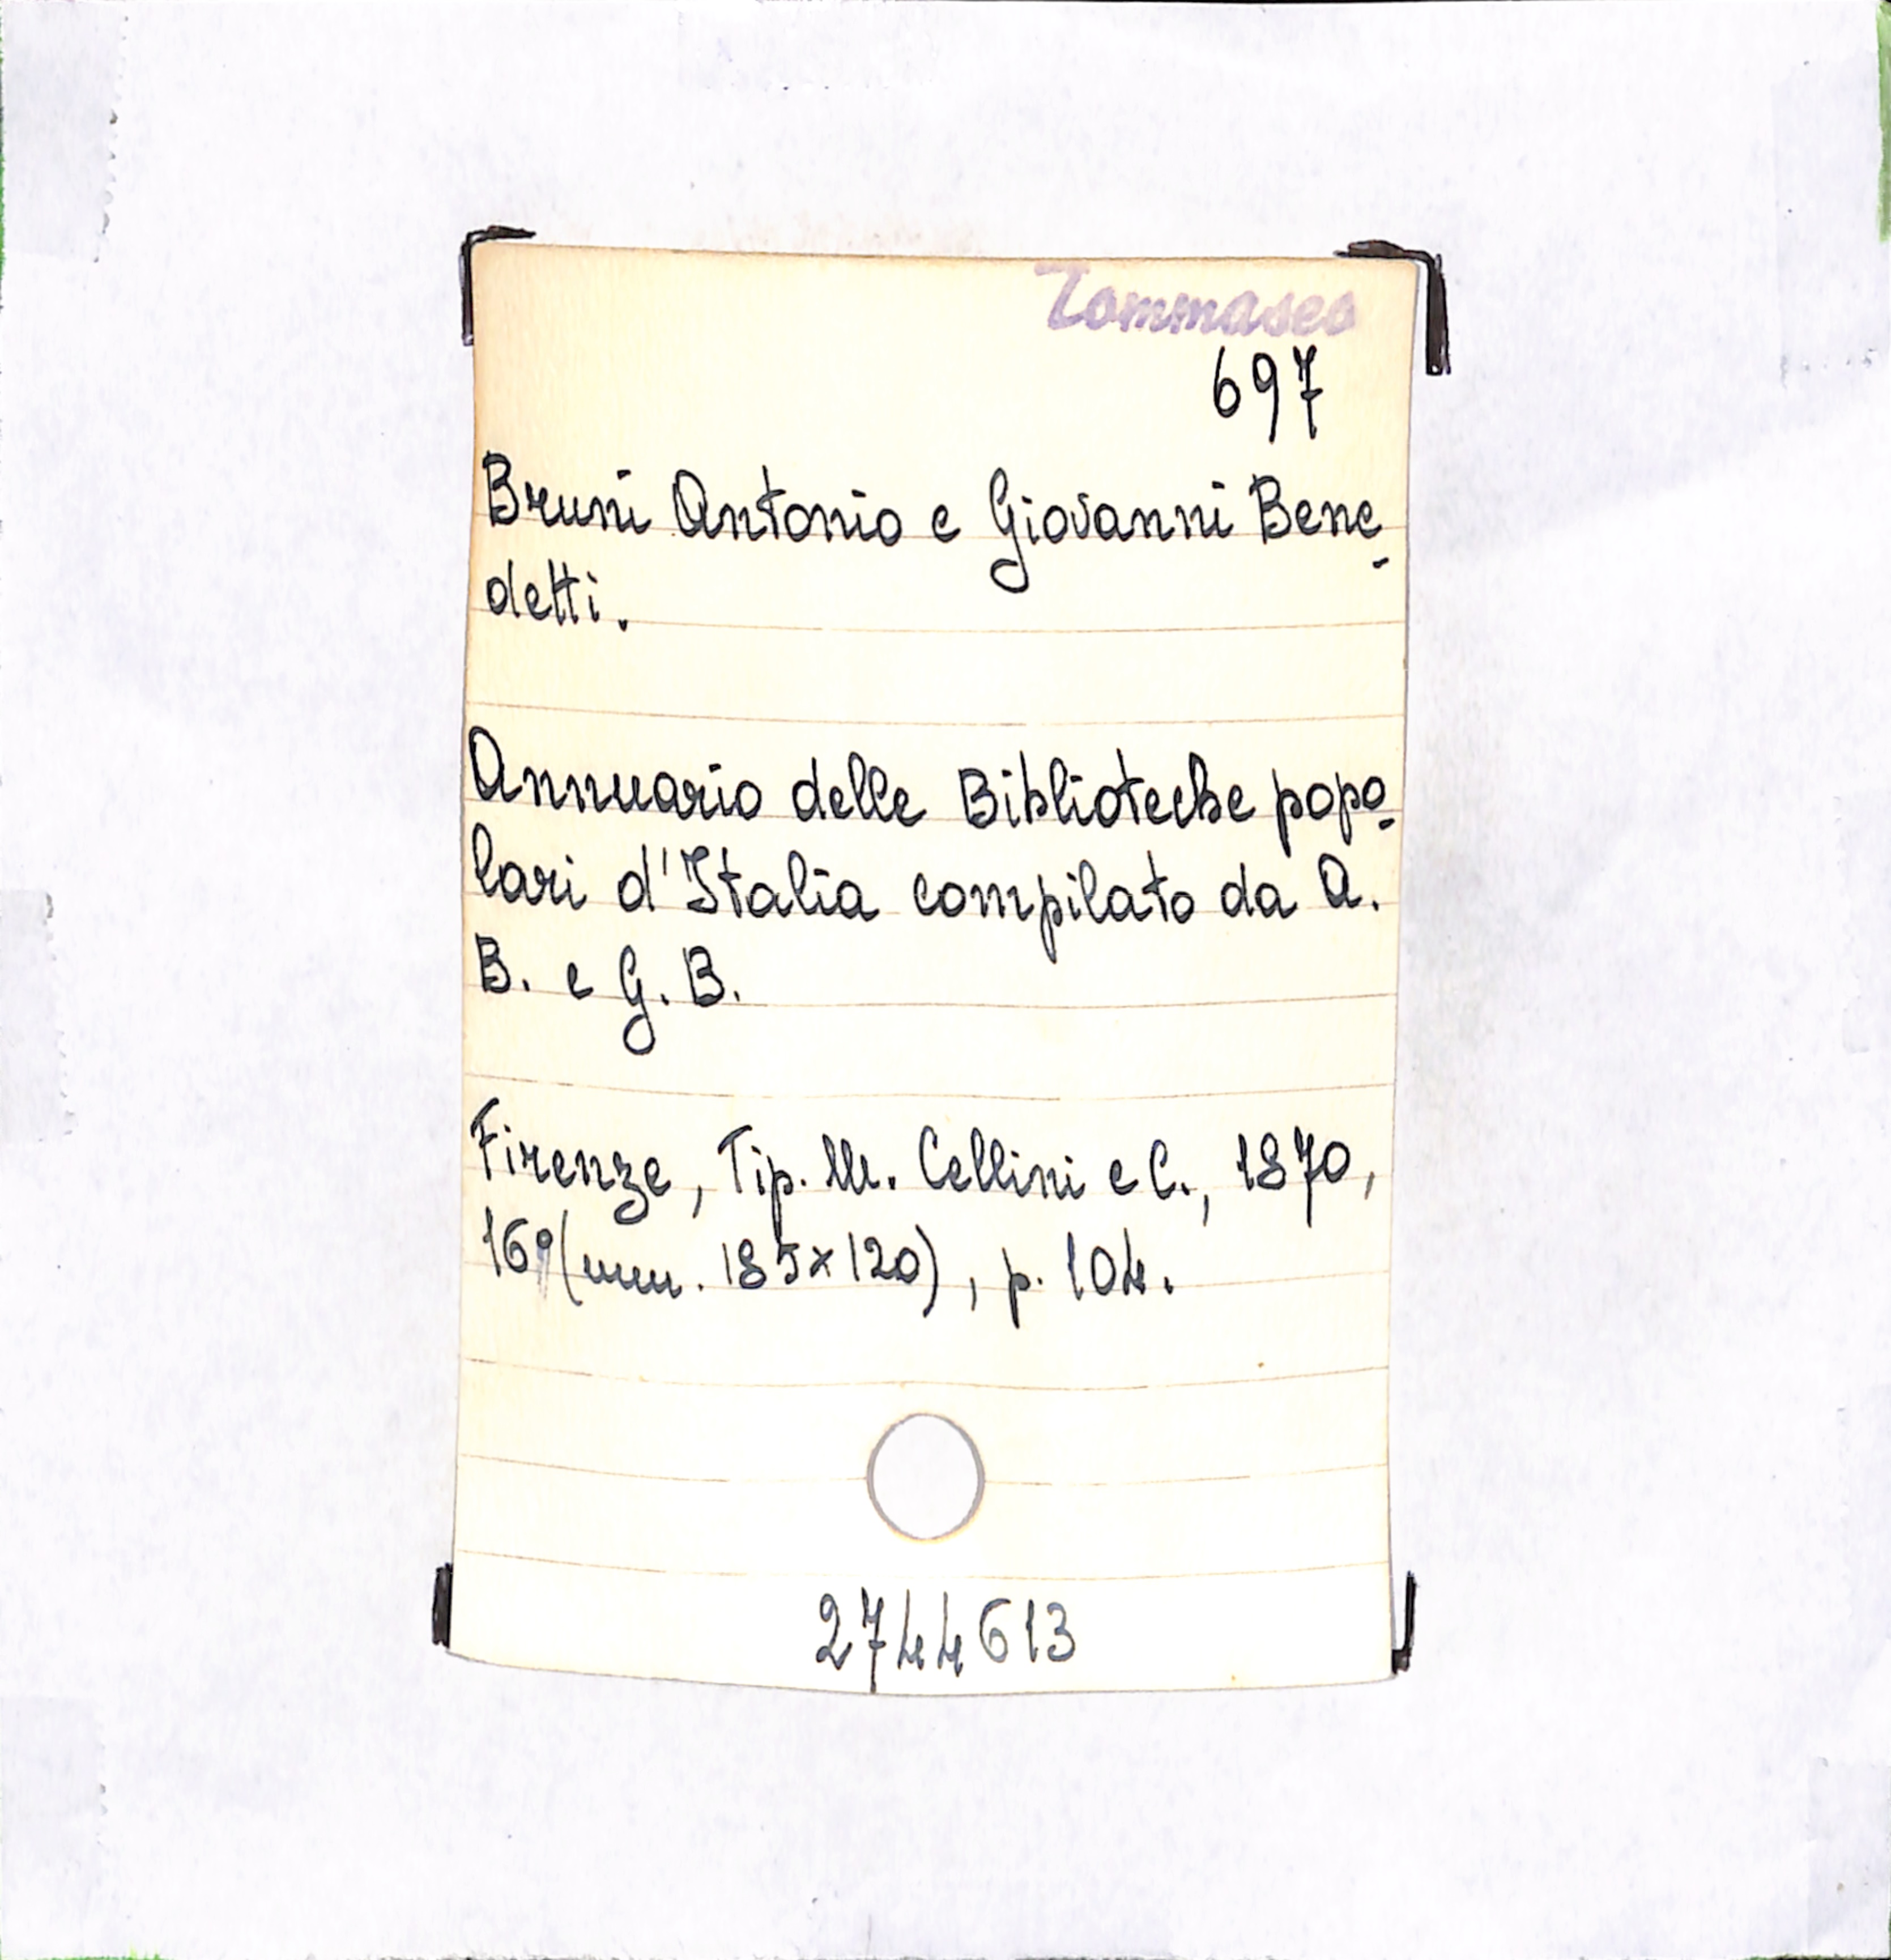 Tommaseo
697
Bruni Antonio e Giovanni Bene-
detti.
Annuario delle Biblioteche popo-
lari d'Italia compilato da A.
B. e G. B.
Firenze, Tip. M. Cellini e C., 1870,
16º (mm. 185x120), p. 104.
2744613